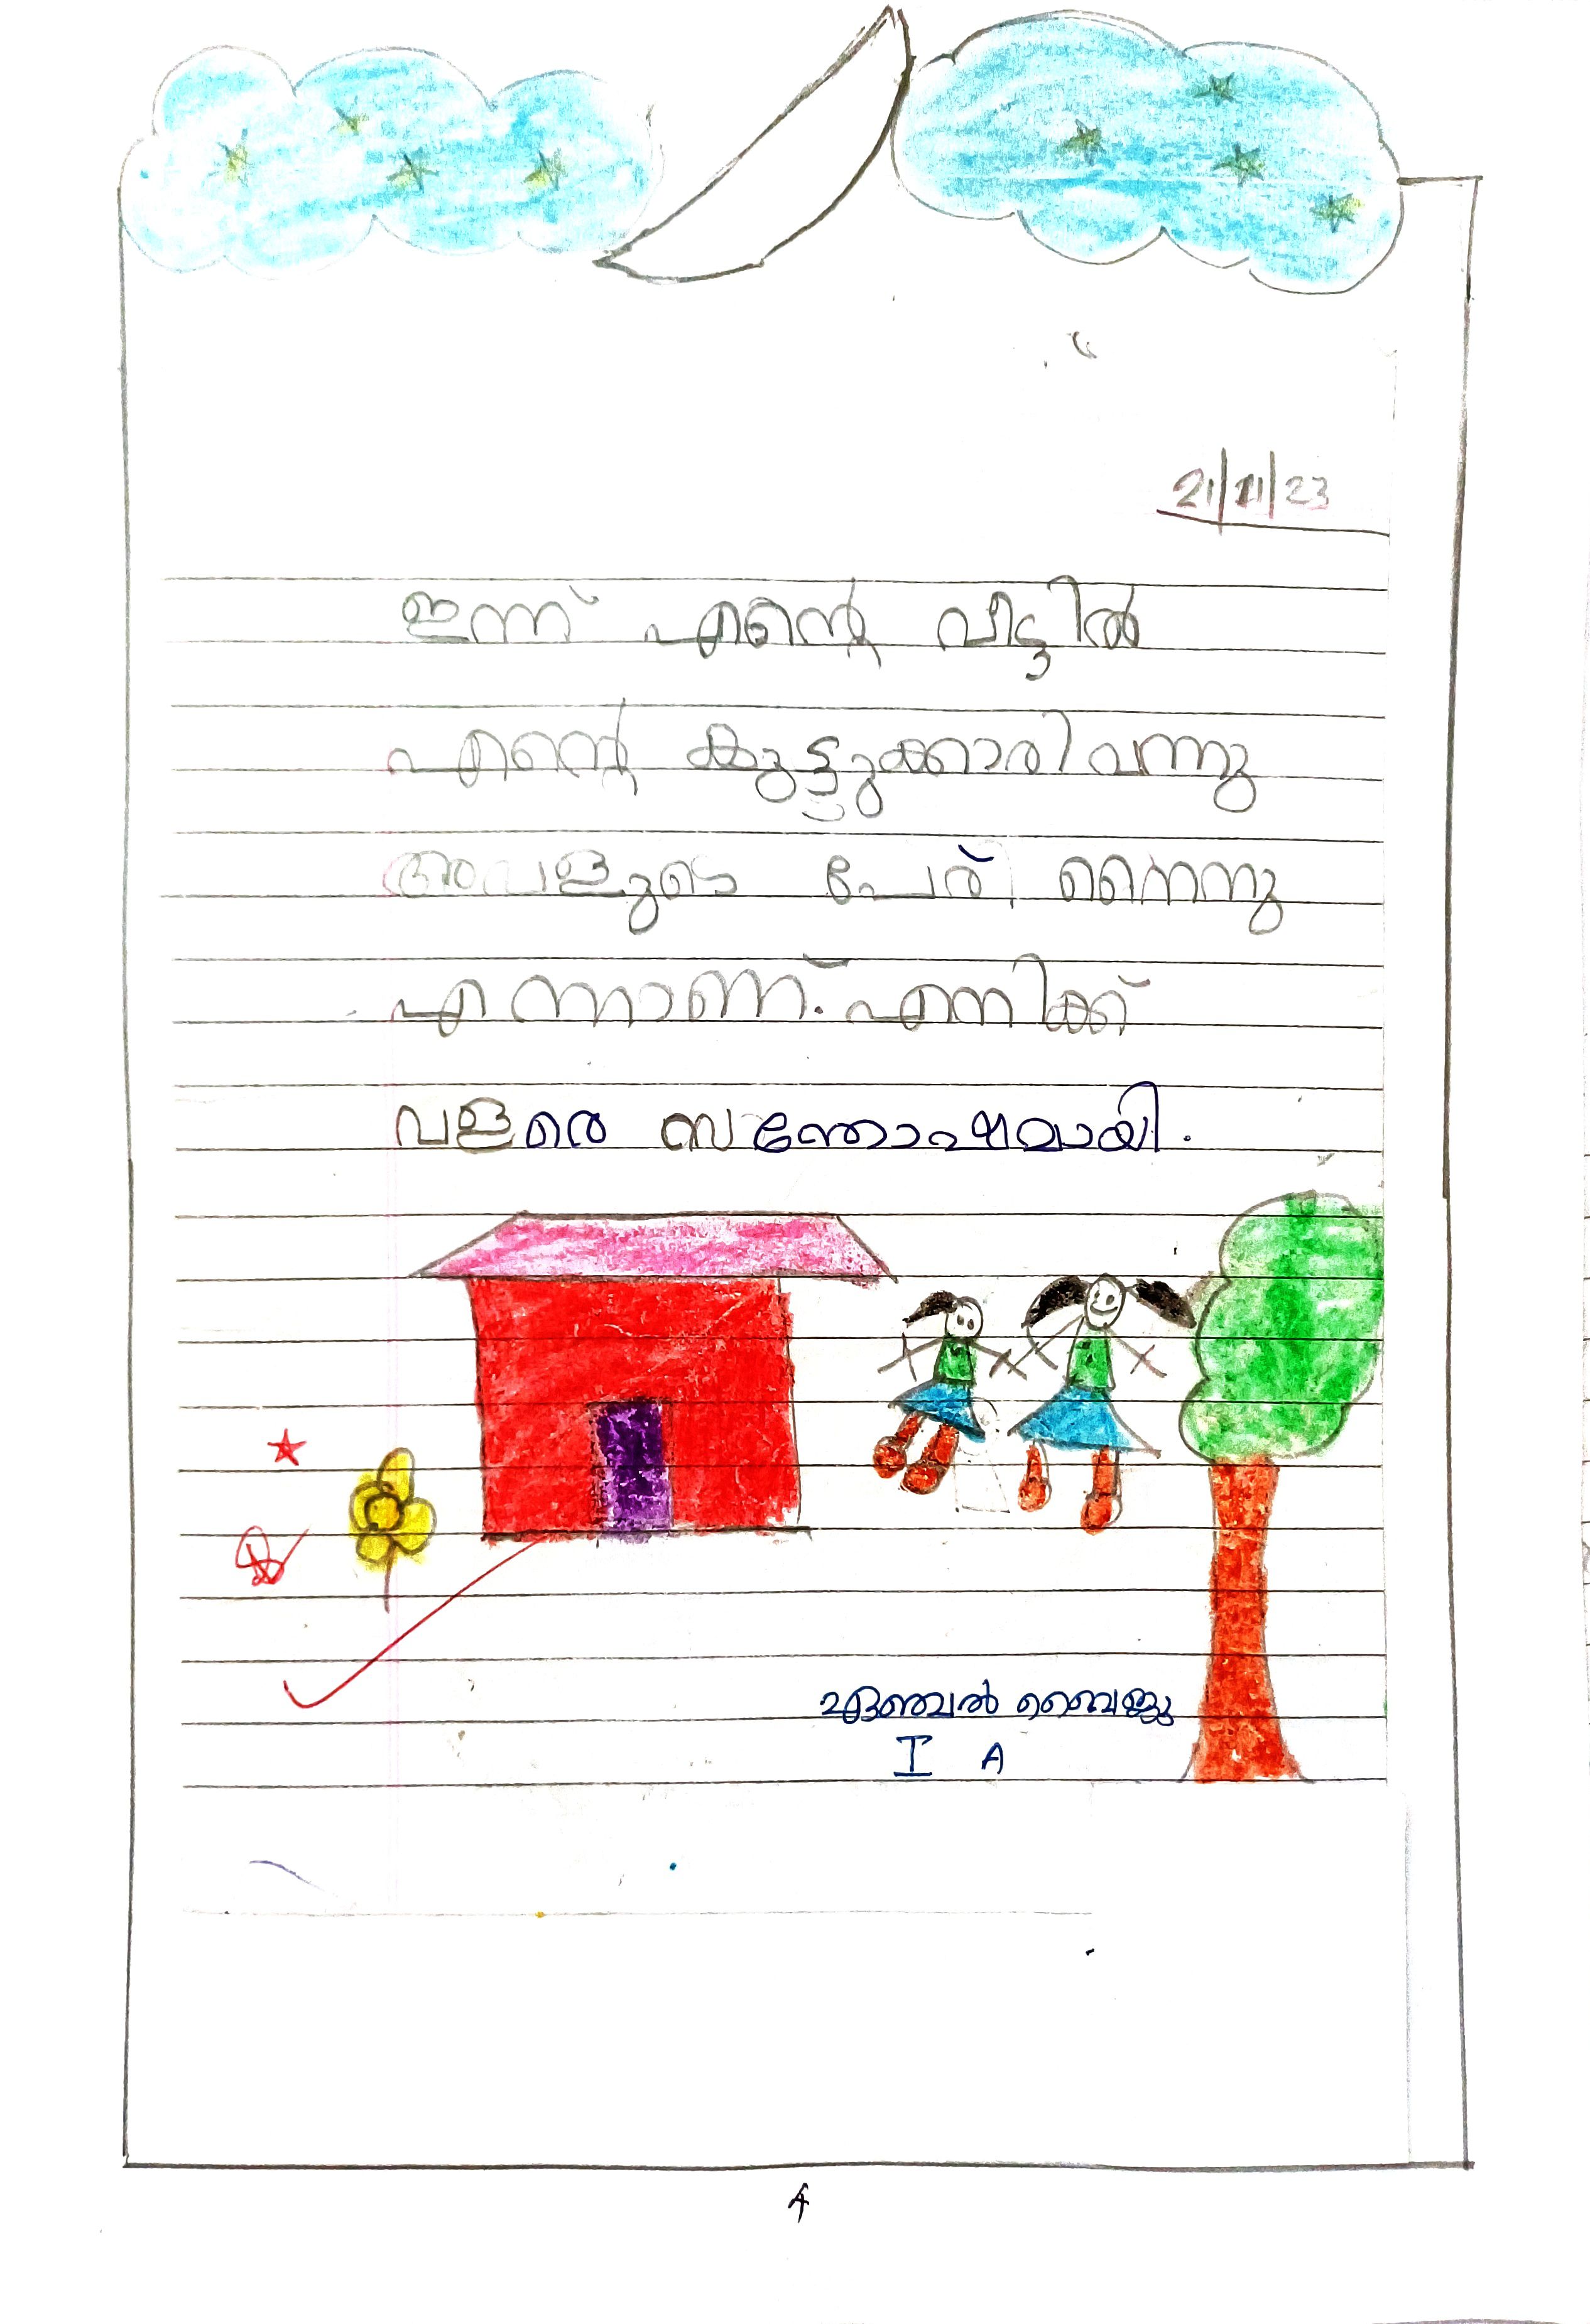 21/11/23
ഇന്ന് എന്റെ വീട്ടിൽ
എന്റെ കുട്ടുക്കാരി വന്നു
അവളുടെ പേര് നൈനു
എന്നാണ്. എനിക്ക്
വളരെ സന്തോഷമായി.
ഏഞ്ചൽ ബൈജു
I A
4